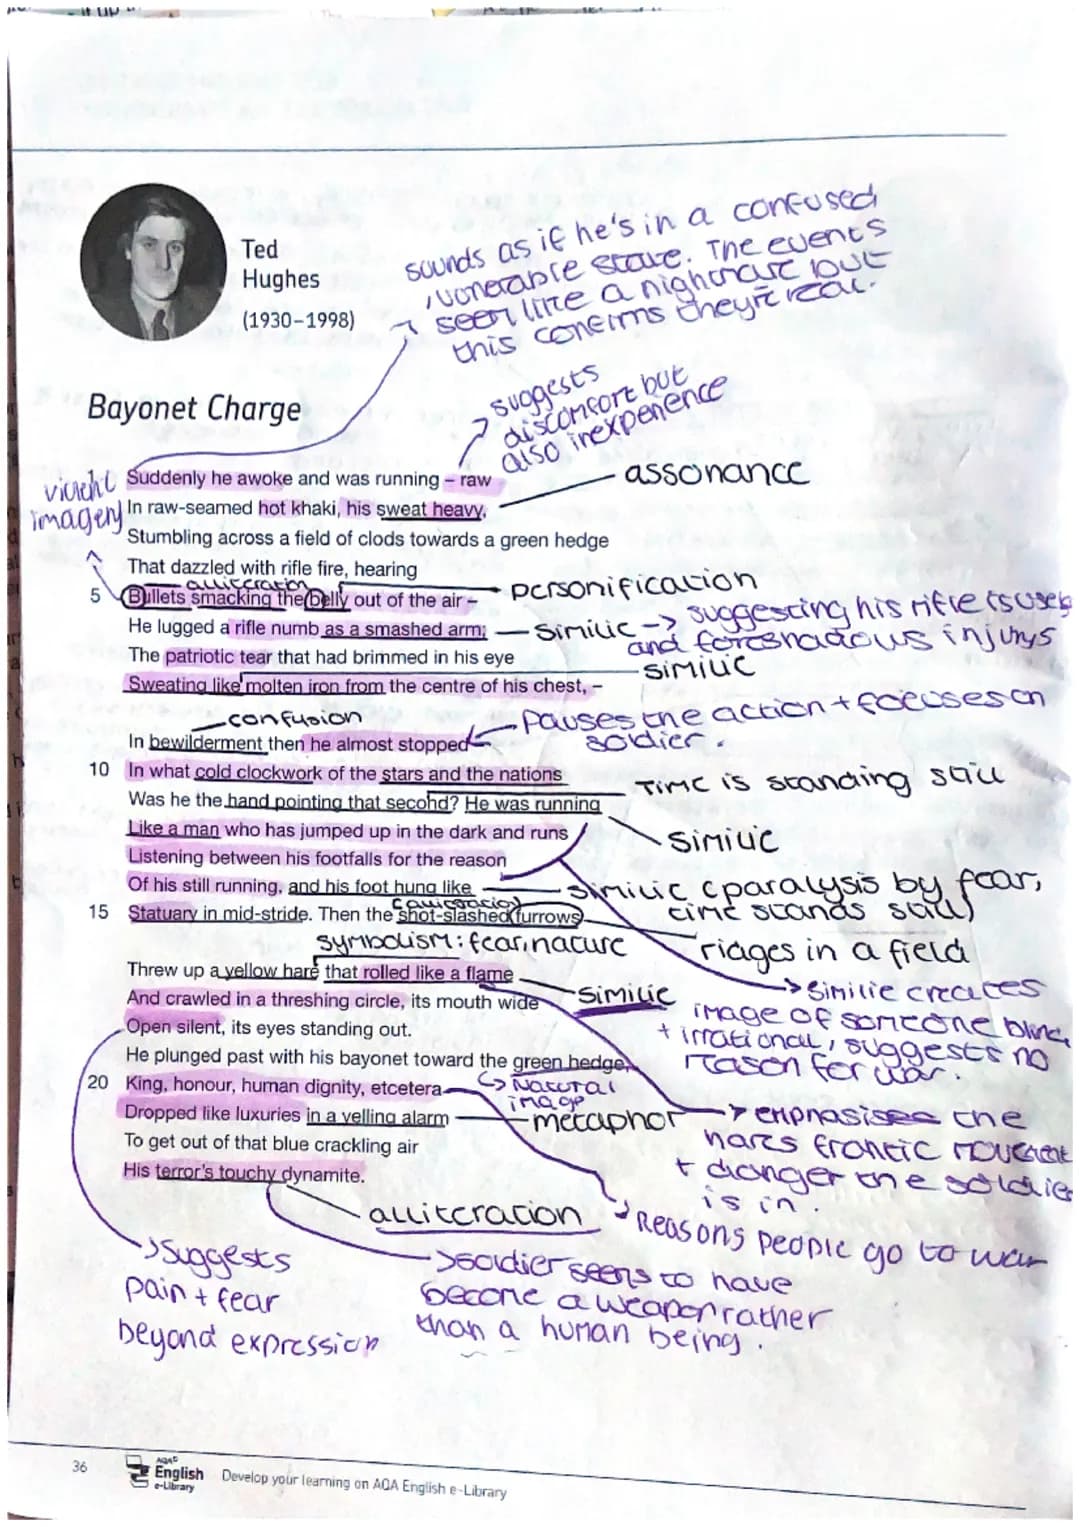 Ted
Hughes
(1930–1998)
sounds as if he's in a confused
, vonerable state. The events
seem like a nightmare but
this confirms they're real.
Bayonet Charge
suggests
discomfort but
also inexperience
assonance
violent
imagery
1 Suddenly he awoke and was running – raw
In raw-seamed hot khaki, his sweat heavy,
Stumbling across a field of clods towards a green hedge
That dazzled with rifle fire, hearing
alliteration
personification
5 Bullets smacking the belly out of the air –
He lugged a rifle numb as a smashed arm;
similie -> suggesting his rifle is useless
and injurys
The patriotic tear that had brimmed in his eye
similie
Sweating like molten iron from the centre of his chest, –
confusion
Pauses the action + focuses on
soldier.
In bewilderment then he almost stopped
10 In what cold clockwork of the stars and the nations
Time is standing still
Was he the hand pointing that second? He was running
Like a man who has jumped up in the dark and runs
similie
Listening between his footfalls for the reason
Of his still running, and his foot hung like
similie (paralysis by fear,
time stands still)
15 Statuary in mid-stride. Then the shot-slashed furrows
symbolism: fear, nature
ridges in a field
Threw up a yellow hare that rolled like a flame
similie
And crawled in a threshing circle, its mouth wide
Open silent, its eyes standing out.
similie creates
image of someone blind
+ irrational, suggests no
reason for war.
He plunged past with his bayonet toward the green hedge,
Natural
image
20 King, honour, human dignity, etcetera
Dropped like luxuries in a yelling alarm
metaphor
To get out of that blue crackling air
His terror's touchy dynamite.
emphasises the
hares frantic movement
+ danger the soldier
is in.
alliteration
Reasons people go to war
suggests
pain + fear
beyond expression
soldier seems to have
become a weapon rather
than a human being.
36
AQA
English
e-Library
Develop your learning on AQA English e-Library